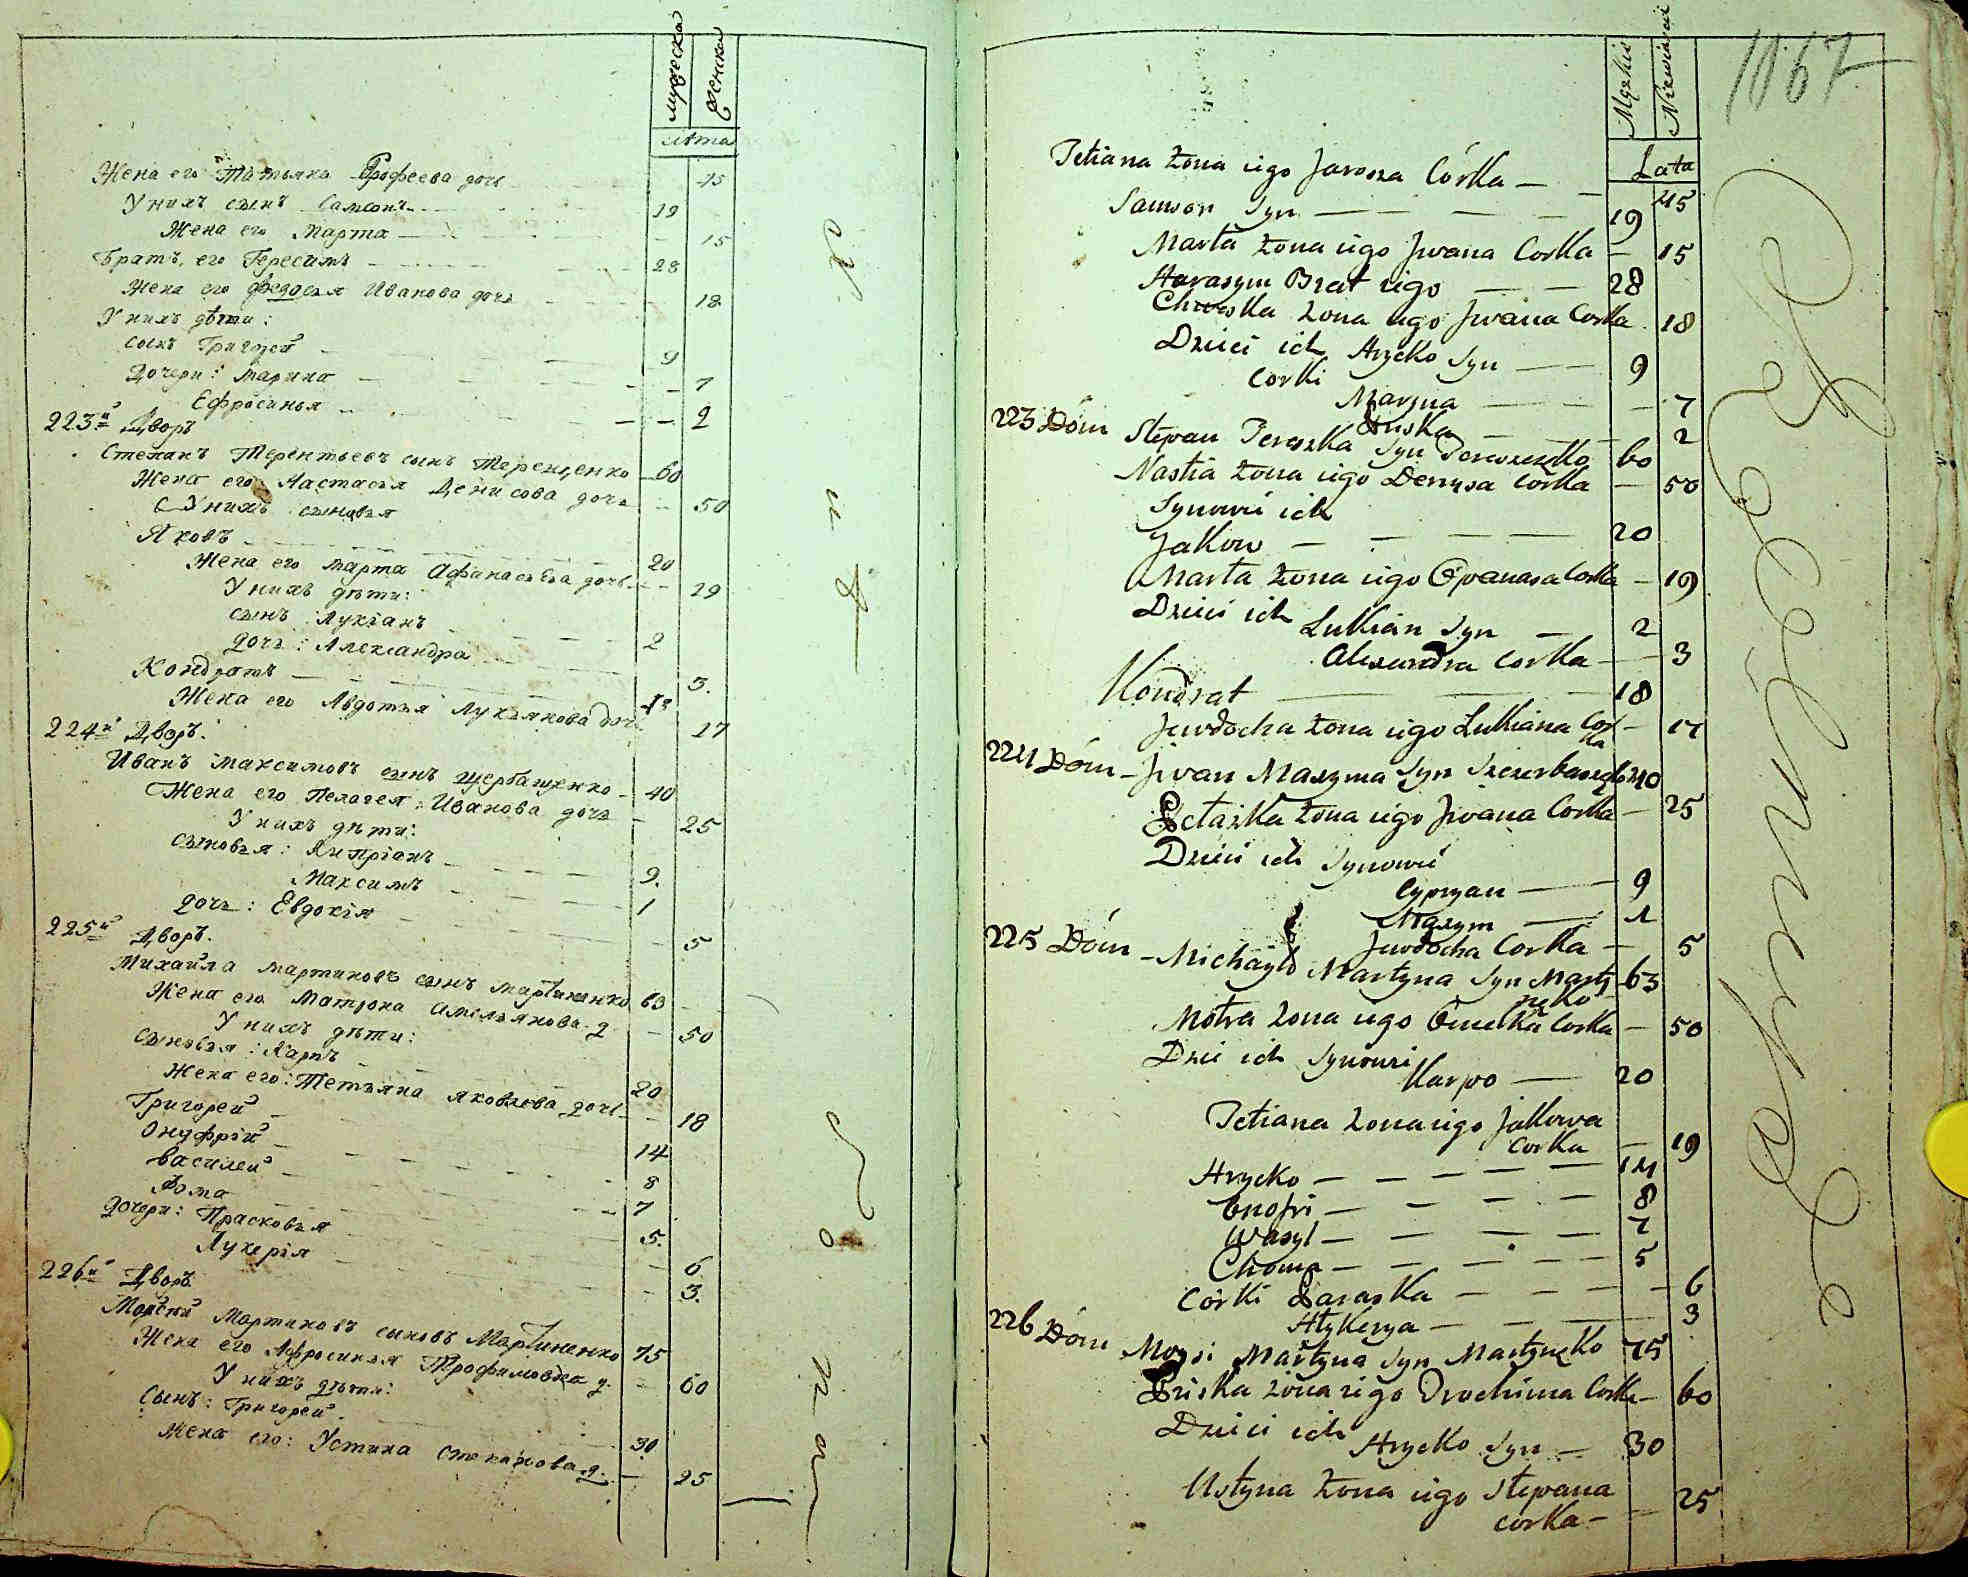 мужеска
женска
лѣта
Жена его Татьяна Ерофеева дочь 45
У нихъ сынъ Самсонъ 19
Жена его Марта 15
Братъ его Герасимъ 28
Жена его Федосья Иванова дочь 18
У нихъ дѣти:
сынъ Григорей 9
Дочери: Марина 7
Ефросинья 2
223й Дворъ
Степанъ Терентьевъ сынъ Терещенко 60
Жена его Настасья Денисова дочь 50
У нихъ сыновья
Яковъ 20
Жена его Марта Афанасьева дочь 19
У нихъ дѣти:
сынъ: Лукіанъ 2
дочь: Александра 3.
Кондратъ 18
Жена его Авдотья Лукьянова доч: 17
224й Дворъ.
Иванъ Максимовъ сынъ Щербащенко 40
Жена его Пелагея: Иванова дочь 25
У нихъ дѣти:
сыновья: Кипріанъ 9.
Максимъ 1
дочь: Евдокія 5
225й Дворъ.
Михайла Мартиновъ сынъ Мартиненко 63
Жена его Матрона Амельянова д. 50
У нихъ дѣти:
Сыновья: Карпъ 20
Жена его: Тетьяна Яковлева дочь 18
Григорей 14
Онуфрій 8
Василей 7
Фома 5.
дочери: Прасковья 6
Лукерія 3.
226й Дворъ
Мойсей Мартиновъ сыновъ Мартиненко 75
Жена его Афросинья Трофимовна д. 60
У нихъ дѣти:
Сынъ: Григорей 30.
Жена его: Устина Степанова д. 25
1167
Męzkie
Niewieście
Lata
Tetiana żona iego Jarosza Córka — 45
Samson Syn — 19
Marta żona iego Jwana Corka — 15
Harasym Brat iego — 28
Chweska żona iego Jwana Corka 18
Dzieci ich Hrycko Syn — 9
Corki
Maryna — 7
Pruska — 2
223 Dóm Stepan Tereszka Syn Tereszenko 60
Nastia żona iego Denysa Corka — 50
Synowie ich
Jakow — 20
Marta żona iego Opanasa Corka — 19
Dzieci ich Lukian Syn — 2
Alexandra Corka — 3
Kondrat — 18
Jewdocha żona iego Lukiana Cor — 17
ka
224 Dóm — Jwan Maxyma Syn 40
żona iego Jwana Corka — 25
Dzieci ich Synowie
Cypryan — 9
Maxym — 1
Jewdocha Corka — 5
225 Dóm — Michayło Martyna Syn Marty 63
nęko
Motra żona iego Omelka Corka — 50
Dzieci ich Synowie
Karpo — 20
Tetiana żona iego Jakowa
Corka — 19
Hrycko — 14
Onofri — 8
Wasyl — 7
Choma — 5
Córki Paraska — 6
Hłykerya — 3
226 Dóm Moysi Martyna Syn Martynęko 75
Priska żona iego Trochima Corka — 60
Dzieci ich Hrycko Syn — 30
Ustyna żona iego Stepana
corka — 25